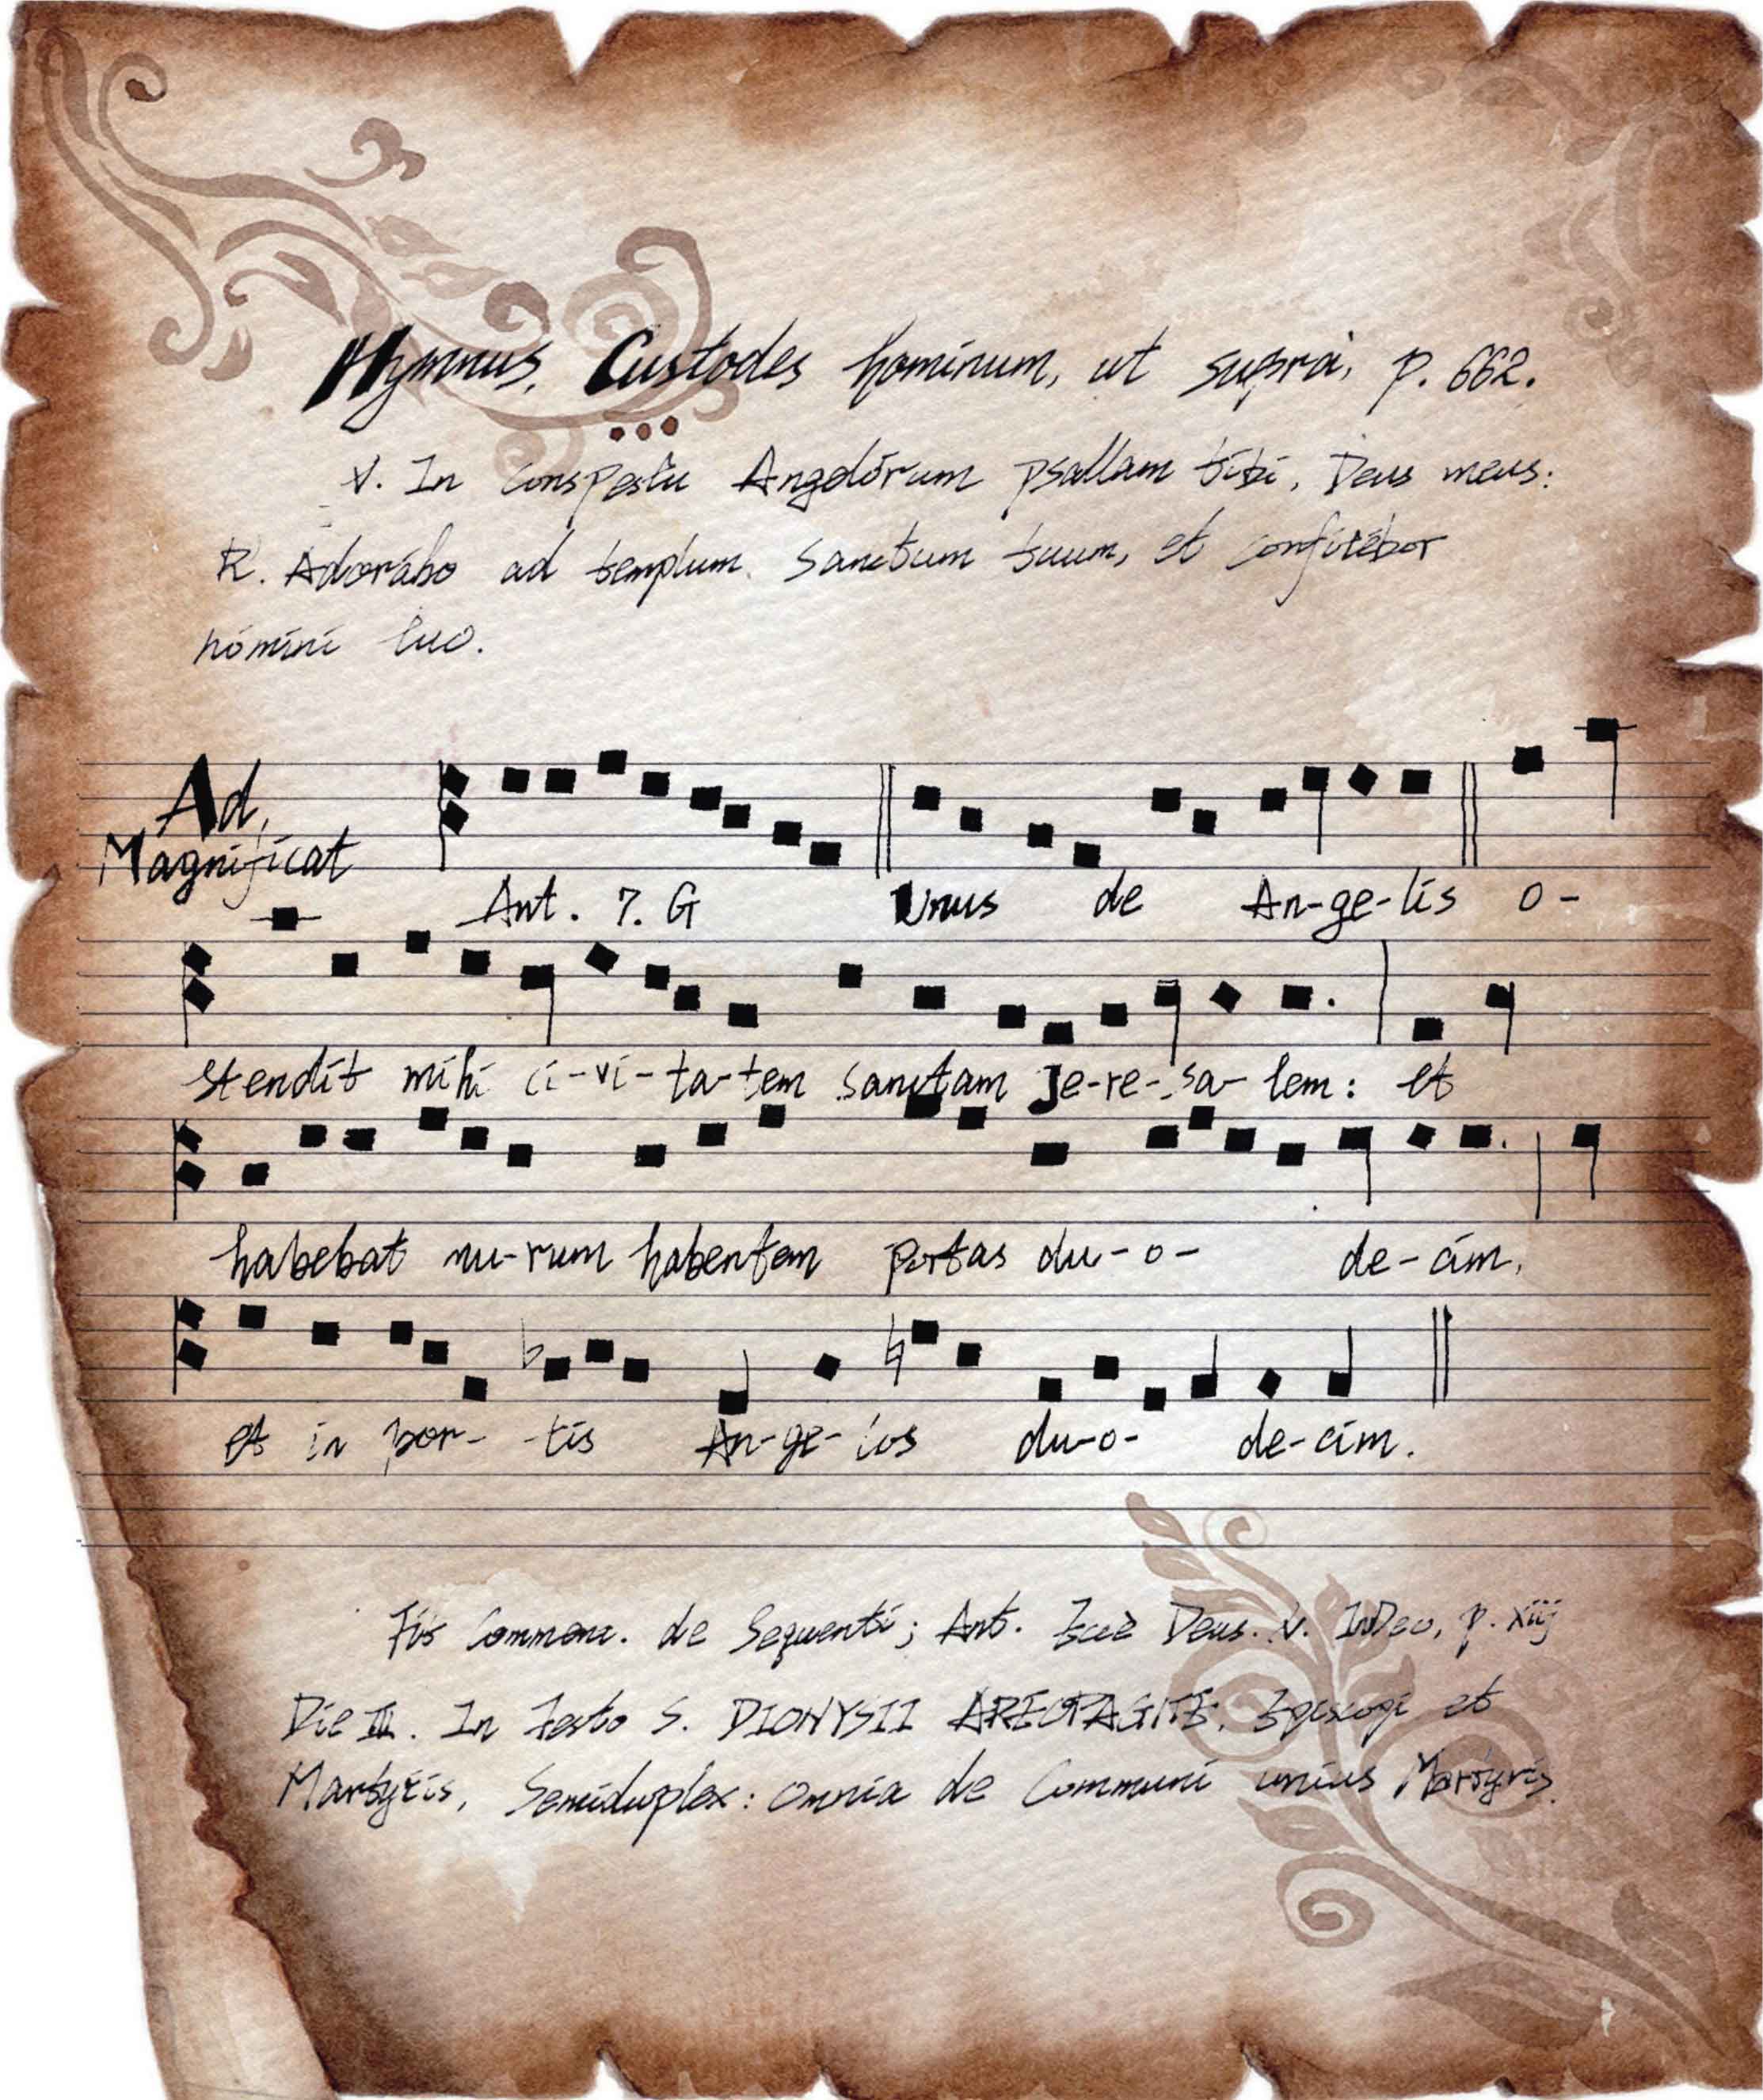 Hymnus, Custodes hominum, ut suprà, p. 662.
V. In conspectu Angelórum psallam tibi, Deus meus:
R. Adorábo ad templum Sanctum tuum, et confitébor
nómini tuo.
Ad
Magnificat
Ant. 7. G Unus de An-ge-lis o-
stendit mihi ci-vi-ta-tem sanctam Je-re-sa-lem: et
habebat mu-rum habentem portas du-o-de-cim,
et in por--tis An-ge-los du-o-de-cim.
Commem. de Sequenti; Ant. Deus. V. In Deo, p. xiij
Die III. In Festo S. DIONYSII AREOPAGITÆ, Episcopi et
Martyris, Semiduplex: Omnia de Communi unius Martyris.